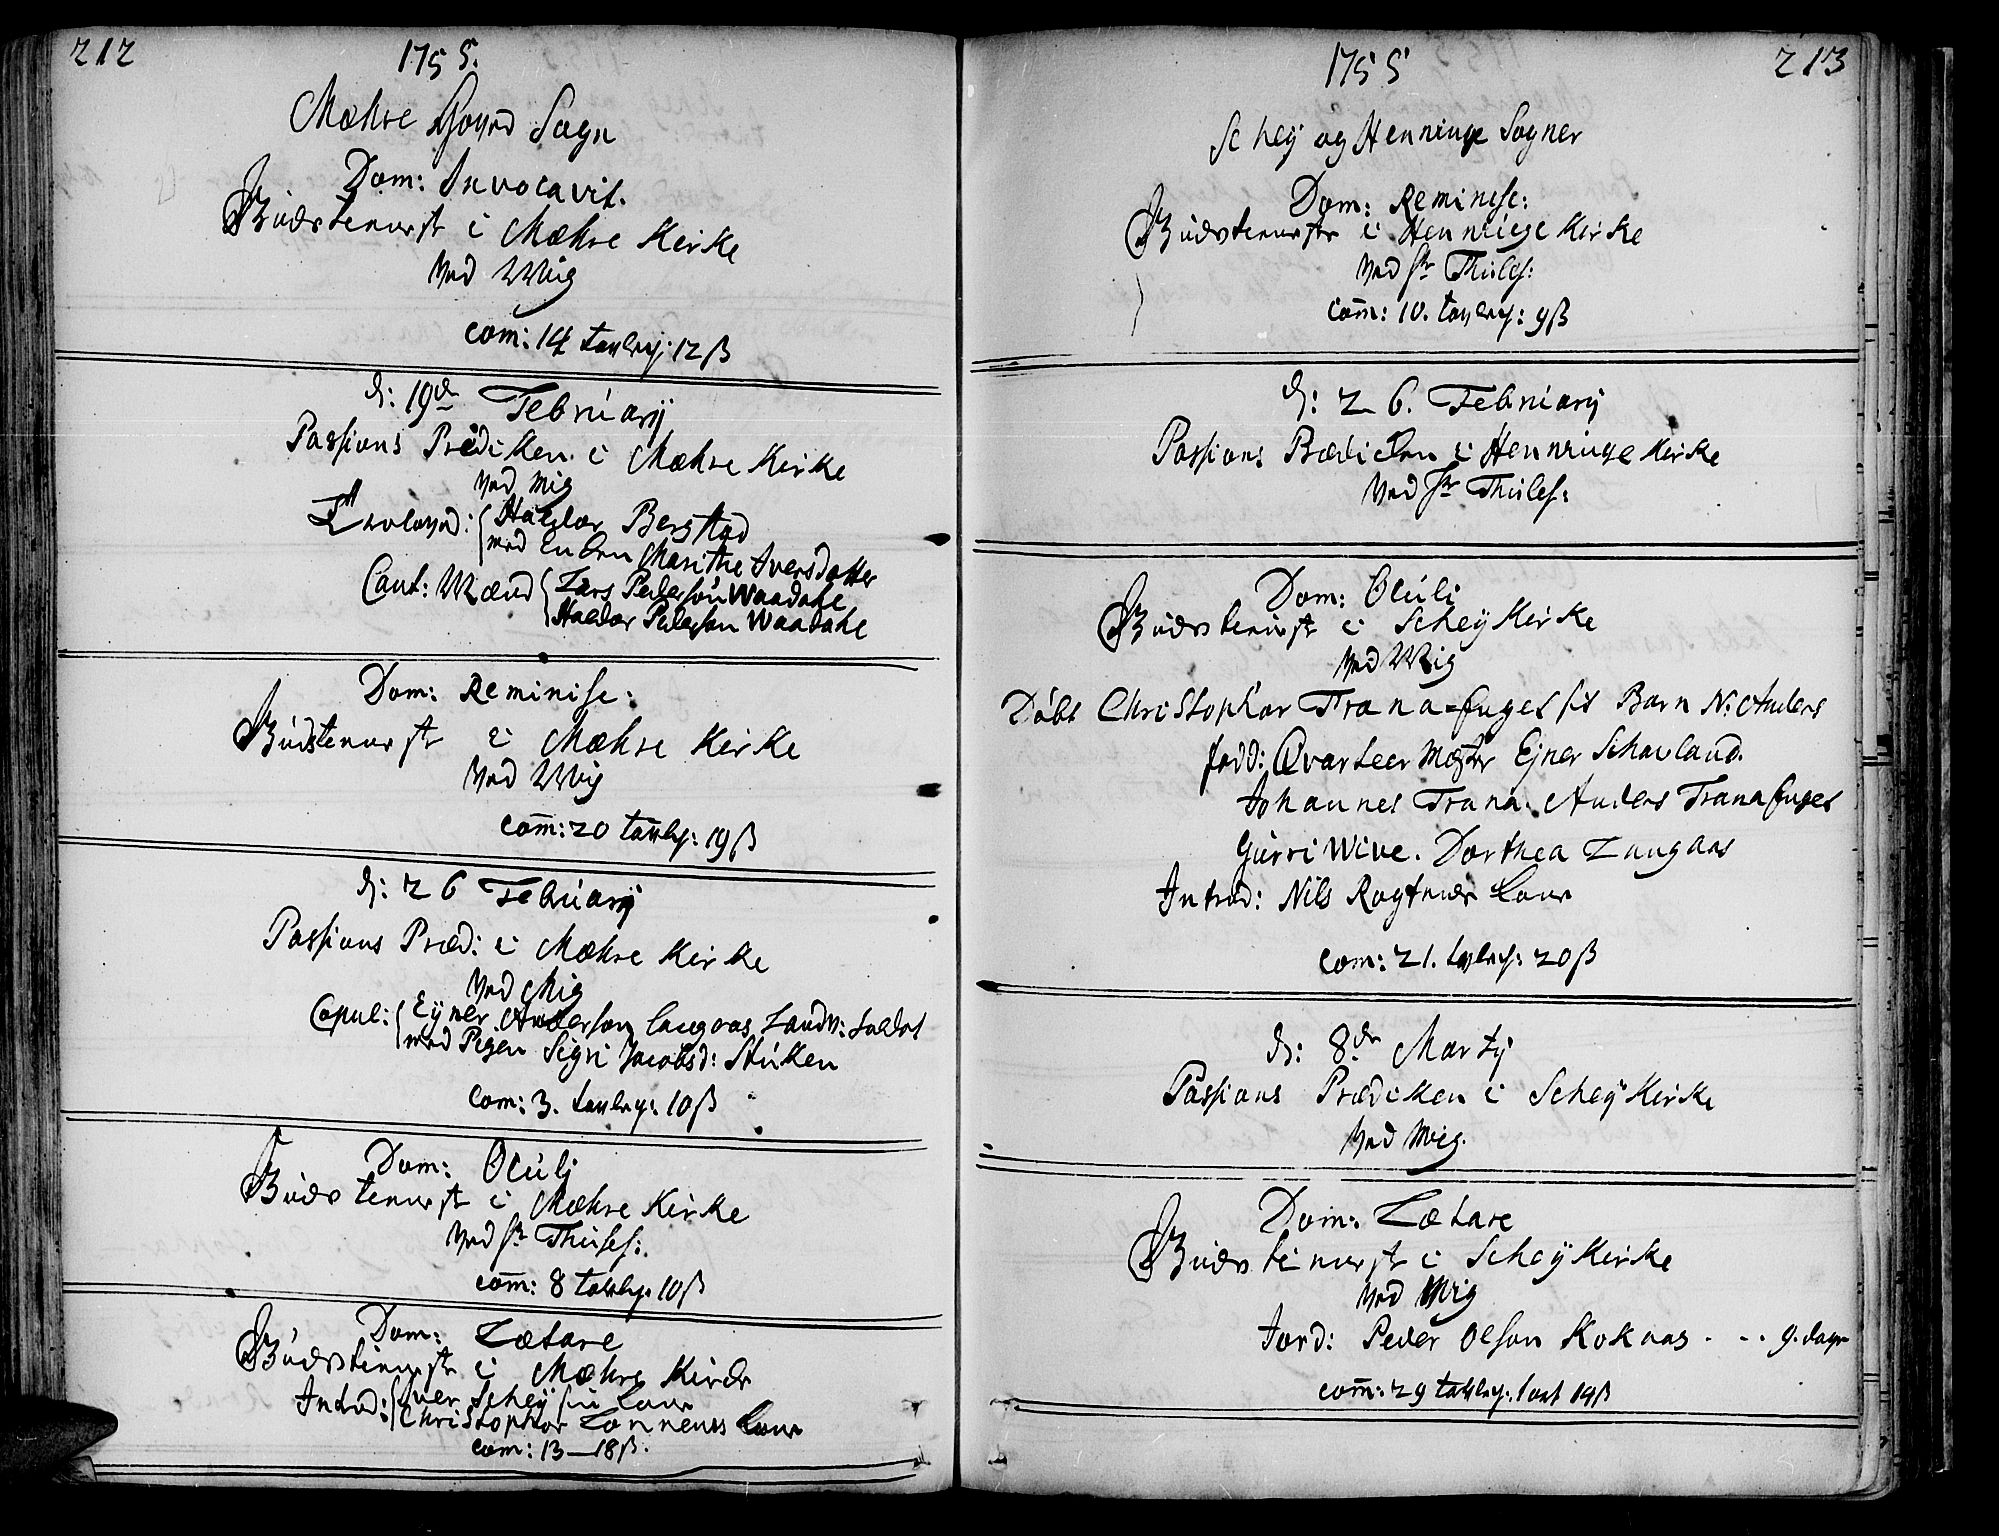 212
1755.
Mæhre Hoved Sogn
Dom: Invocavit.
Gudstenest i Mæhre Kirke
ved Mig
com: 14 tavlep: 12 ß
d: 19de Februarij
Passions Prediken i Mæhre Kirke
ved mig
Trolovd: Haldor Bergstad
med Enken Marithe Iversdatter
Caut: Mænd Lars Pedersøn Waadahl
Haldor Pedersøn Waadahl
Dom: Reminisc:
Gudstenest i Mæhre Kirke
ved Mig
com: 20 tavlep: 19 ß
d: 26 Februarij
Passions Præd: i Mæhre Kirke
ved Mig
Copul: Eyner Andersøn Langaas Landv: Soldat
med Pigen Sigri Jacobsd: Stuken
com: 3. tavlep: 10 ß
Dom: Oculj
Gudstenest i Mæhre Kirke
ved Sr Thules:
com: 8 tavlep. 10 ß
Dom: Lætare
Gudstenest i Mæhre Kirke
Introd: Iver Scheys Kone
Christopher Kone
com: 13 — 18 ß.
1755
213
Schey og Henninge Sogner
Dom: Reminisc:
Gudstenest i Henninge Kirke
ved Sr Thules:
com: 10. tavlep: 9 ß
d: 26. Februarij
Passions Prædicken i Henninge Kirke
ved Sr Thules:
Dom: Oculi
Gudstenest i Schey Kirke
ved Mig
Døbt Christopher Trana-Enget sit Barn N: Anders
fadd: Qvarteer Mester Ejner Schavland.
Johannes Trana. Anders Trana Enget
Gurri Wive. Dorthea Langaas
Introd: Nils Kone
com: 21. tavlep: 20 ß
d: 8de Martij
Passions Prædicken i Schey Kirke
ved Mig.
Dom: Lætare
Gudstenest i Schey Kirke
ved Mig
Jord: Peder Olsøn Koknas . . . 9. dage
com: 29 tavlep: 1 ort 19 ß